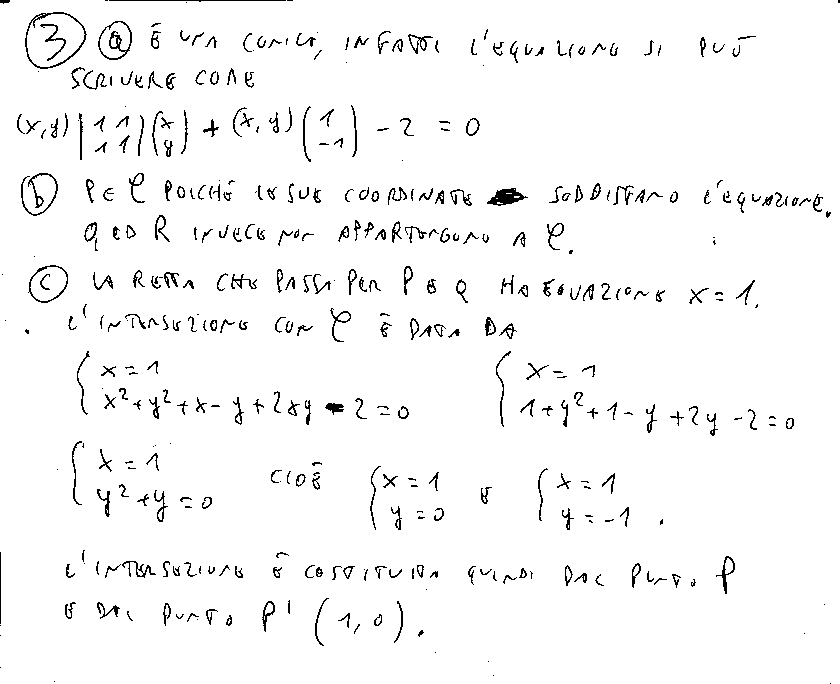 ③ ⓐ È UNA CONICA, INFATTI L'EQUAZIONE SI PUÒ
SCRIVERE COME
(x,y) | 1 1 / 1 1 | (x / y) + (x,y) (1 / -1) - 2 = 0
ⓑ P ∈ C POICHÉ LE SUE COORDINATE SODDISFANO L'EQUAZIONE.
Q ED R INVECE NON APPARTENGONO A C.
ⓒ LA RETTA CHE PASSA PER P E Q HA EQUAZIONE x = 1.
L'INTERSEZIONE CON C È DATA DA
{ x = 1 / x² + y² + x - y + 2xy - 2 = 0 { x = 1 / 1 + y² + 1 - y + 2y - 2 = 0
{ x = 1 / y² + y = 0 CIOÈ { x = 1 / y = 0 E { x = 1 / y = -1 .
L'INTERSEZIONE È COSTITUITA QUINDI DAL PUNTO P
E DAL PUNTO P' (1,0).